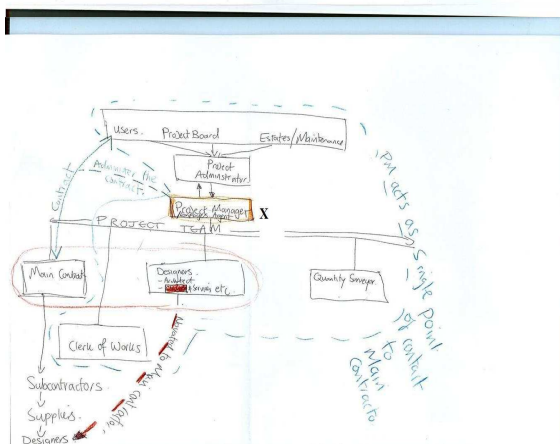 Users. Project Board Estates/Maintenance
Project
Administrator
Administer the
Contract
Contract
Project Manager
X
PROJECT TEAM
Main Contract
Designers.
- Architect
services etc.
Quantity Surveyor
Clerk of Works
Novated to Main Contractor
Subcontractors.
Supplies.
Designers
PM acts as Single point
of contact
to
Main
Contracto